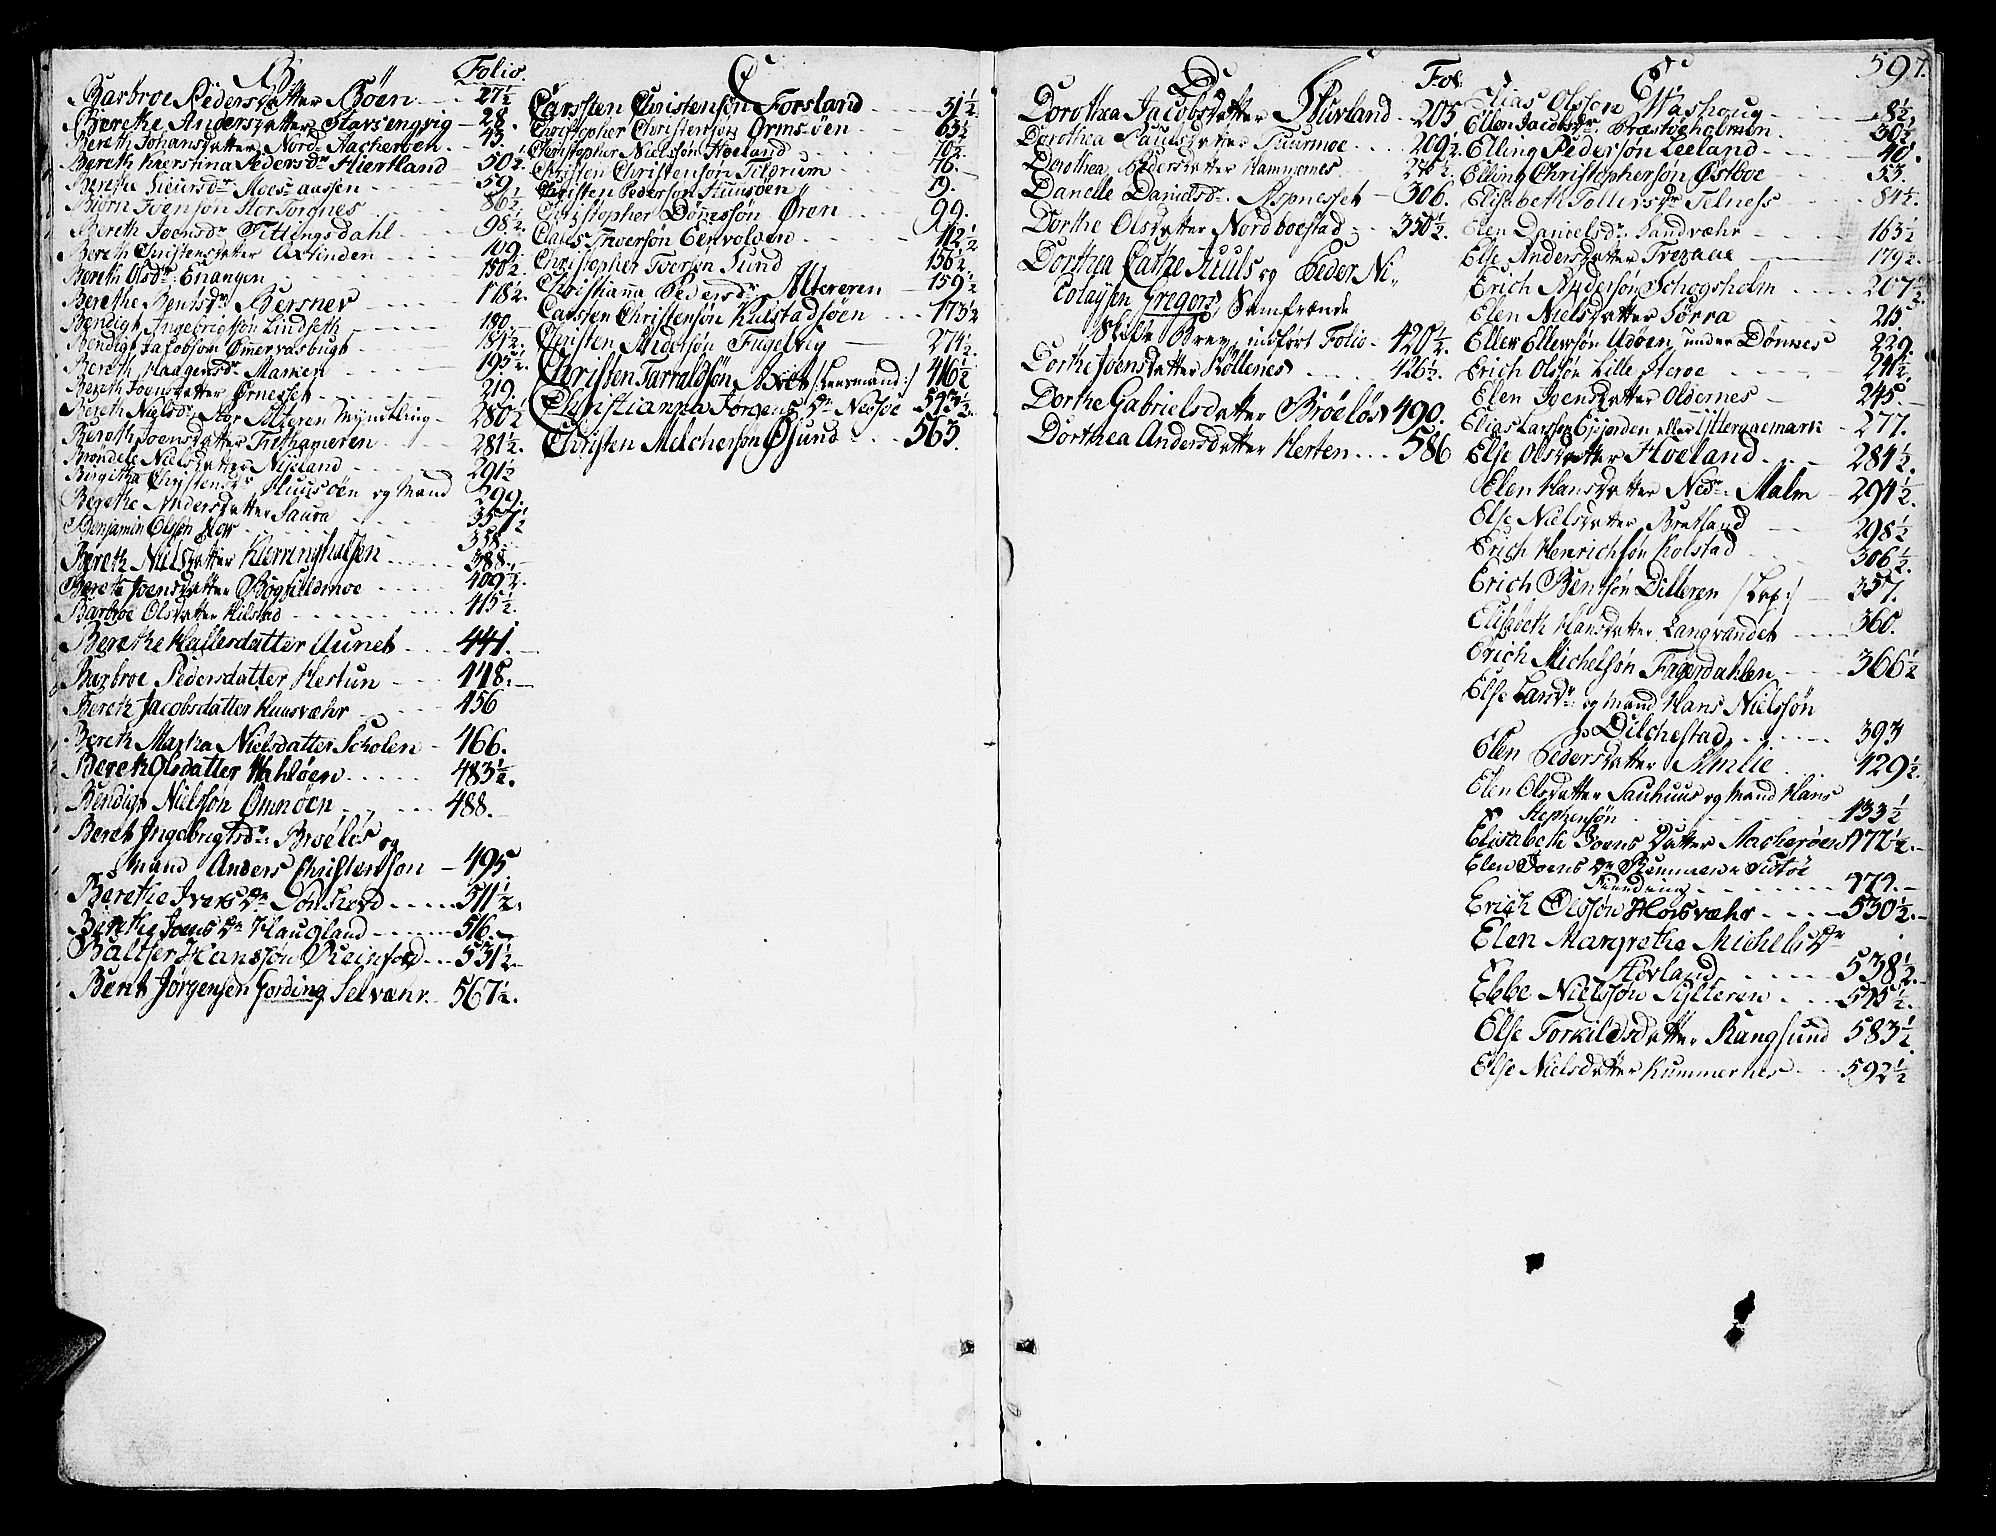 B Folio.
Barbroe Pedersdatter Bøen 27½
Berethe Andersdatter Starsengvig 28.
Bereth Johansdatter Nord Hacherøen 43.
Bereth Kierstina Pedersdr Hiertland 50½
59.
Biørn Joensøn Stor Torgnes 86½
Bereth Joensdr Tettingsdahl 98½
Bereth Christensdatter Axtinden 109
Bereth Olsdr Enangen 150½
Berethe Bentsdr Bersner 178½
Bendigt Ingebrigtsøn Lindseth 190
Bendigt Jacobsøn Ømmervasbugt 191½
Bereth Haagensdr Marken 195½
Bereth Joensdatter Ørnesset 219.
Bereth Nielsdr Stor Alteren Myndtling 280½
Bereth Joensdatter Frethameren 281½
Brondele Nielsdatter Nijeland 291½
Birgitha Christensdr Huusøen og Mand 299.
Berethe Andersdatter Saura 357½
Benjamin Olssøn 358
Bereth Nielsdatter Kierringhalsen 388
Bereth Joensdatter Bogfieldmoe 409½
Barbroe Olsdatter Hilstad 415½
Berethe Hallesdatter Aunet 441.
Barbroe Pedersdatter Hestun 448.
Bereth Jacobsdatter Huusvæhr 456
Bereth Martha Nielsdatter Scholen 466.
Bereth Olsdatter Hahløen 483½
Bendigt Nielssøn Omnøen 488.
Beret Ingebrigtsdr Brøeløs og
Mand Anders Christenson 495
Berethe Ivers dr Dønherd 511½
Berethe Joens dr Haugland 516.
Baltser Hanssøn Reinford 531½
Bent Jørgensen Gording Selvæhr. 567½.
C
Carsten Christensøn Forsland 31½
Christopher Christensøn Ormsøen 63½
Christopher Nielssøn Høeland 70½
Christen Christensøn Tilorum 76.
Christen Pedersøn Huusøen 9.
Christopher Dønessøn Øren 99.
Claus Iversøn Eervolden 112½
Christopher Iversøn Sund 156½
Christianna Pedersdr Alteren 159½
Carsten Christensøn Kulstadsøen 173½
Christen Andersøn Fugelvig 274½
Christen Tarraldsøn Axvik /:Leensmand:/ 416½
Christianna Jørgens Dr Nesføe 543½
Christen Melchersøn Øsund 563.
D Fol.
Dorothea Jacobsdatter Høvland 205
Dorothea Paulsdatter Fuurmoe 209½
Dorothea Pedersdatter Hamnnes 270½
Danelle Danielsdr Aspnesset 306.
Dorthe Olsdatter Nordboestad 350½
Dorthea Cathe Juuls og Peder Ni-
colaysen Gregers Samfrænde
Skifte Brev, indført Folio 420½.
Dorthe Joensdatter Kollenes 426½.
Dorthe Gabrielsdatter Brøeløs 490.
Dorthea Andersdatter Herten 586
E 597.
Elias Olssøn Washoug 8½
Ellen Jacobsdr Præstøeholmen 30½
Elling Pedersøn Leeland 40.
Elling Christophersøn Østboe 53.
Elisabeth Tollersdr Telness 84½
Elen Danielsdr Sandvæhr 163½
Else Andersdatter Trezaae 179½
Erich Andersøn Schogsholm 207½
Elen Nielsdatter Sørra 215
Eller Ellersøn Udøen, under Dønnes 229.
Erich Olssøn Lille Sterøe 241½
Elen Joensdatter Oldernes 245.
Elias Larssøn Epjorden eller Ytteraaemark 277.
Else Olsdatter Høeland 284½.
Elen Hansdatter Nedr: Malm 294½
Else Nielsdatter Bratland 298½
Erich Henrichsøn Kolstad 306½.
Erich Bentsøn Dilleren /:Lap:/ 357.
Elisabeth Hansdatter Langvandet 360.
Erich Michelsøn Fagerdahlen 366½
Else Larsdr og Mand Hans Nielssøn
Dilchestad 393
Elen Pedersdatter Almlie 429½
Elen Olsdatter Sauhuus og Mand Hans
Stephensøn 433½
Elisabeth Joens Datter Aacherøen 472½
Elen Joens dr Remmen Tostøe
479.
Erich Olssøn Hosvæhr 530½.
Elen Margrethe Michels dr
Høvland 538½
Ebbe Nielssøn Sylteren 545½
Else Torkildsdatter Rangsund 583½
Else Nielsdatter Kummernes 592½